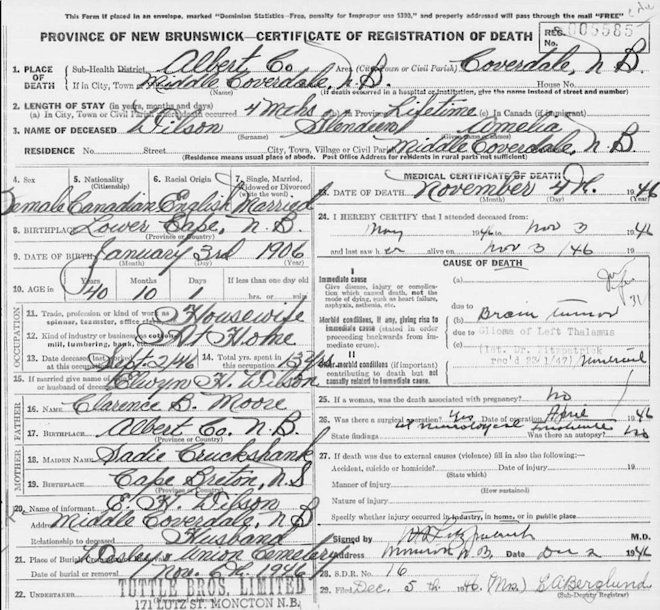 This Form if placed in an envelope, marked "Dominion Statistics—Free, penalty for improper use $300," and properly addressed will pass through the mail "FREE"
PROVINCE OF NEW BRUNSWICK—CERTIFICATE OF REGISTRATION OF DEATH
REG. No. 005585
1. PLACE OF DEATH Sub-Health District Albert Co. Area (City, Town or Civil Parish) Coverdale, N.B.
If in City, Town Middle Coverdale, N.B. House No.
(Name) (If death occurred in a hospital or institution, give the name instead of street and number)
2. LENGTH OF STAY (in years, months and days)
(a) In City, Town or Civil Parish where death occurred 4 Mths (b) in Province Lifetime (c) In Canada (if immigrant)
3. NAME OF DECEASED Wilson Amelia
(Surname) (Given names)
RESIDENCE No. Street City, Town, Village or Civil Parish Middle Coverdale, N.B.
(Residence means usual place of abode. Post Office Address for residents in rural parts not sufficient.)
4. Sex 5. Nationality (Citizenship) 6. Racial Origin 7. Single, Married, Widowed or Divorced (write the word)
Female Canadian English Married
8. BIRTHPLACE Lower Cape, N.B.
(Province or Country)
9. DATE OF BIRTH January 3rd 1906
(Month) (Day) (Year)
10. AGE in Years Months Days If less than one day old
40 10 1 hrs. or min.
OCCUPATION
11. Trade, profession or kind of work as spinner, teamster, office clerk Housewife
12. Kind of industry or business as cotton mill, lumbering, bank, etc. At Home
13. Date deceased last worked at this occupation Sept. 2/46 14. Total yrs. spent in this occupation 13 yrs
15. If married give name of husband or wife of deceased Elwyn H. Wilson
FATHER
16. Name Clarence B. Moore
17. BIRTHPLACE Albert Co. N.B.
(Province or Country)
MOTHER
18. MAIDEN NAME Sadie Cruckshank
19. BIRTHPLACE Cape Breton, N.S
(Province or Country)
20. Name of informant E. H. Wilson
Address Middle Coverdale, N.B.
Relationship to deceased Husband
21. Place of Burial Union Cemetery
Date of burial or removal Nov. 6th. 1946
22. UNDERTAKER TUTTLE BROS. LIMITED
171 LUTZ ST. MONCTON N.B.
MEDICAL CERTIFICATE OF DEATH
23. DATE OF DEATH November 4th. 1946
(Month) (Day) (Year)
24. I HEREBY CERTIFY that I attended deceased from:
May 1946 to Nov 3 1946
and last saw her alive on Nov 3 1946
CAUSE OF DEATH
I
Immediate cause
Give disease, injury or complication which caused death, not the mode of dying, such as heart failure, asphyxia, asthenia, etc.
(a)
due to
Morbid conditions, if any, giving rise to immediate cause (stated in order proceeding backwards from immediate cause).
(b) Brain tumor
due to Glioma of Left Thalamus
(c) (Int. Dr. Fitzpatrick
rec'd 23/1/47)
II
Other morbid conditions (if important) contributing to death but not causally related to immediate cause.
25. If a woman, was the death associated with pregnancy? No
26. Was there a surgical operation? Yes Date of operation April 1946
State findings at Neurological Institute Was there an autopsy? No
27. If death was due to external causes (violence) fill in also the following:—
Accident, suicide or homicide? Date of injury 19
(State which)
Manner of injury
(How sustained)
Nature of injury
Specify whether injury occurred in industry, in home, or in public place
Signed by Fitzpatrick M.D.
Address Moncton N.B. Date Dec 2 1946
28. S.D.R. No. 16
29. Filed Dec. 5th. 1946. (Mrs.) L A Berglund
(Sub-Deputy Registrar)